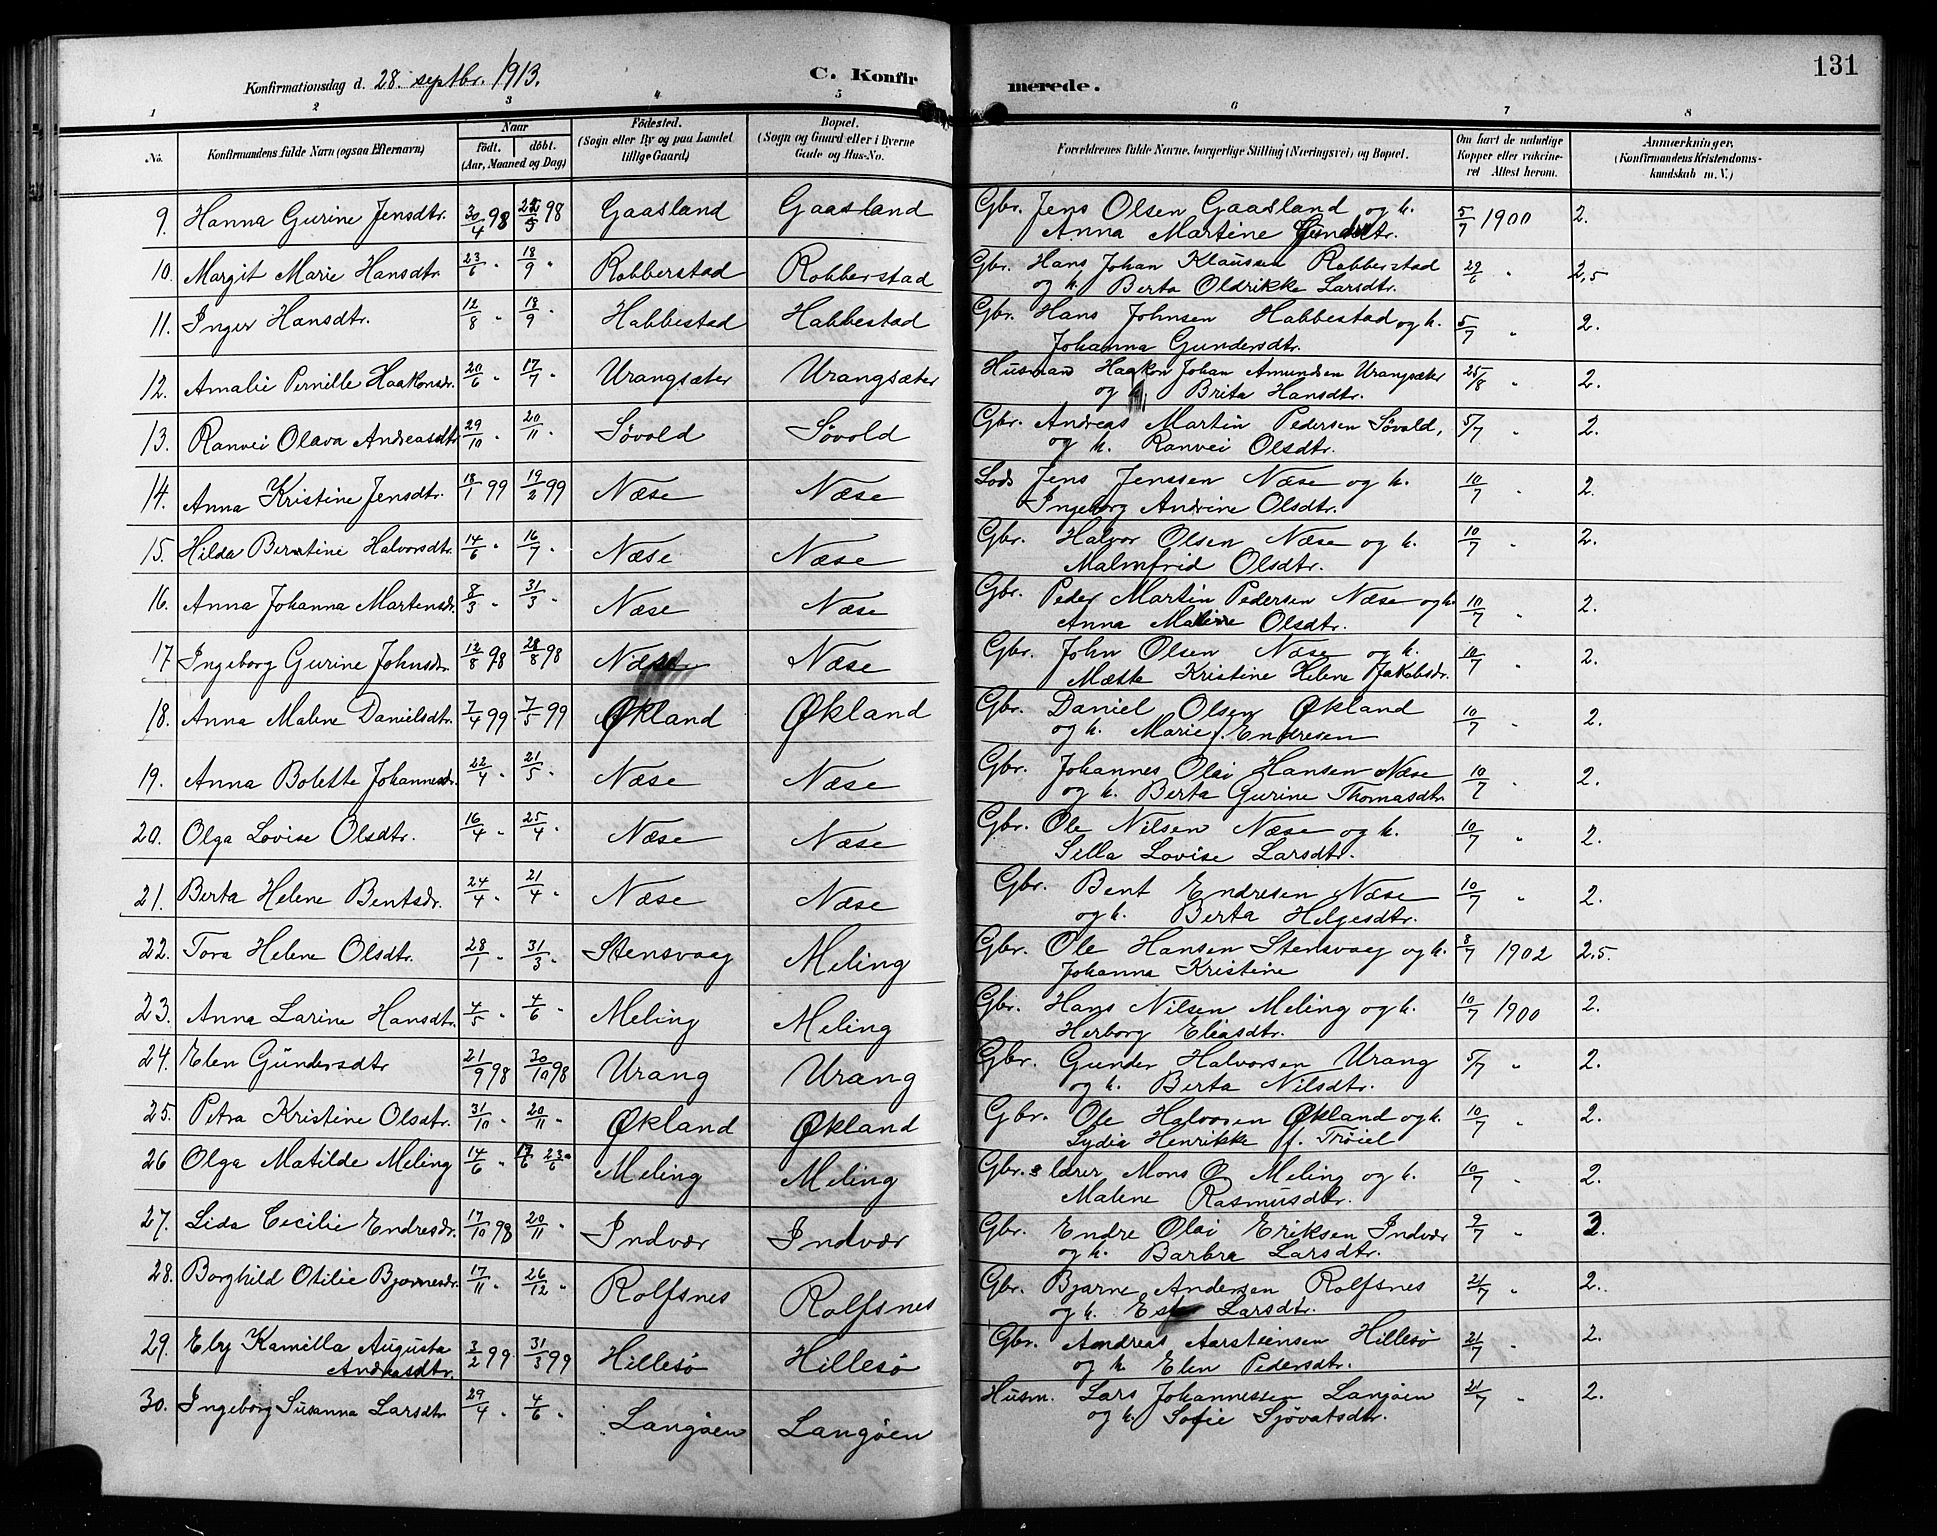 131
Konfirmationsdag d. 28. septbr. 1913. C. Konfirmerede.
1 2 3 4 5 6 7 8
No. Konfirmandens fulde Navn (ogsaa Efternavn) Naar født. døbt. (Aar, Maaned og Dag) Fødested. (Sogn eller By og paa Landet tillige Gaard) Bopæl. (Sogn og Gaard eller i Byerne Gade og Hus-No. Forældrenes fulde Navne, borgerlige Stilling (Næringsvei) og Bopæl. Om havt de naturlige Kopper eller vakcineret Attest herom. Anmærkninger. (Konfirmandens Kristendomskundskab m. V.)
9. Hanna Gurine Jensdtr. 30/4 98 22/5 98 Gaasland Gaasland Gbr. Jens Olsen Gaasland og h. 5/7 1900 2.
Anna Martine
10. Margit Marie Hansdtr. 23/6 " 18/9 " Robberstad Robberstad Gbr. Hans Johan Klausen Robberstad 29/6 " 2,5
og h. Berta Oldrikke Larsdtr.
11. Inger Hansdtr. 12/8 " 18/9 " Habbestad Habbestad Gbr. Hans Johnsen Habbestad og h. 5/7 " 2.
Johanna Gundersdtr.
12. Amalie Pernille Haakonsdr. 20/6 " 17/7 " Urangsæter Urangsæter Husman Haakon Johan Amundsen Urangsæter 25/8 " 2.
og h. Brita Hansdtr.
13. Ranvei Olava Andreasdtr 29/10 " 20/11 " Søvold Søvold Gbr. Andreas Martin Pedersen Søvold, 5/7 " 2.
og h. Ranvei Olsdtr.
14. Anna Kristine Jensdtr. 18/1 99 19/2 99 Næse Næse Lods Jens Jenssen Næse og h. 10/7 " 2.
Ingeborg Andrine Olsdtr.
15. Hilda Berntine Halvorsdtr. 14/6 " 16/7 " Næse Næse Gbr. Halvor Olsen Næse og h. 10/7 " 2.
Malmfrid Olsdtr.
16. Anna Johanna Martensdr. 8/3 " 31/3 " Næse Næse Gbr. Peder Martin Pedersen Næse og h. 10/7 " 2.
Anna Olsdtr.
17. Ingeborg Gurine Johnsdr. 12/8 98 28/8 98 Næse Næse Gbr. John Olsen Næse og h. 10/7 " 2.
Mætte Kristine Helene Jakobsdr.
18. Anna Malene Danielsdtr. 7/4 99 7/5 99 Økland Økland Gbr. Daniel Olsen Økland 10/7 " 2.
og h. Marie f. Endresen
19. Anna Bolette Johannesdr. 22/4 " 21/5 " Næse Næse Gbr. Johannes Olai Hansen Næse 10/7 " 2.
og h. Berta Gurine Thomasdtr.
20. Olga Lovise Olsdtr. 16/4 " 25/4 " Næse Næse Gbr. Ole Nilsen Næse og h. 10/7 " 2.
Silla Lovise Larsdtr.
21. Berta Helene Bentsdr. 24/4 " 21/4 " Næse Næse Gbr. Bent Endresen Næse 10/7 " 2.
og h. Berta Helgesdtr.
22. Tora Helene Olsdtr. 28/1 " 31/3 " Stensvaag Meling Gbr. Ole Hansen Stensvaag og h. 8/7 1902 2,5.
Johanna Kristine
23. Anna Larine Hansdtr. 4/5 " 4/6 " Meling Meling Gbr. Hans Nilsen Meling og h. 10/7 1900 2.
Herborg Eliasdtr.
24. Elen Gundersdtr 21/9 98 30/10 98 Urang Urang Gbr. Gunder Halvorsen Urang 5/7 " 2.
og h. Berta Nilsdtr.
25. Petra Kristine Olsdtr. 31/10 " 20/11 " Økland Økland Gbr. Ole Halvorsen Økland og h. 10/7 " 2.
Lydia Henrikke f. Trøiel
26 Olga Matilde Meling 14/6 " 23/6 " Meling Meling Gbr. & lærer Mons O Meling og h. 10/7 " 2.
Malene Rasmusdtr.
27. Lida Cecilie Endresdr. 17/10 98 20/11 " Indvær Indvær Gbr. Endre Olai Eriksen Indvær 9/7 " 3.
og h. Barbra Larsdtr.
28. Borghild Otilie Bjarnesdr. 17/11 " 26/12 " Rolfsnes Rolfsnes Gbr. Bjarne Andersen Rolfsnes 21/7 " 2.
og h. Larsdtr.
29. Elry Kamilla Augusta 3/2 99 31/3 99 Hillesø Hillesø Gbr. Andreas Aarsteinsen Hillesø 21/7 " 2.
Andreasdtr. og h. Elen Pedersdtr.
30. Ingeborg Susanna Larsdtr 29/4 " 4/6 " Langøen Langøen Husm. Lars Johannessen Langøen 21/7 " 2.
og h. Sofie Sjovatsdtr.